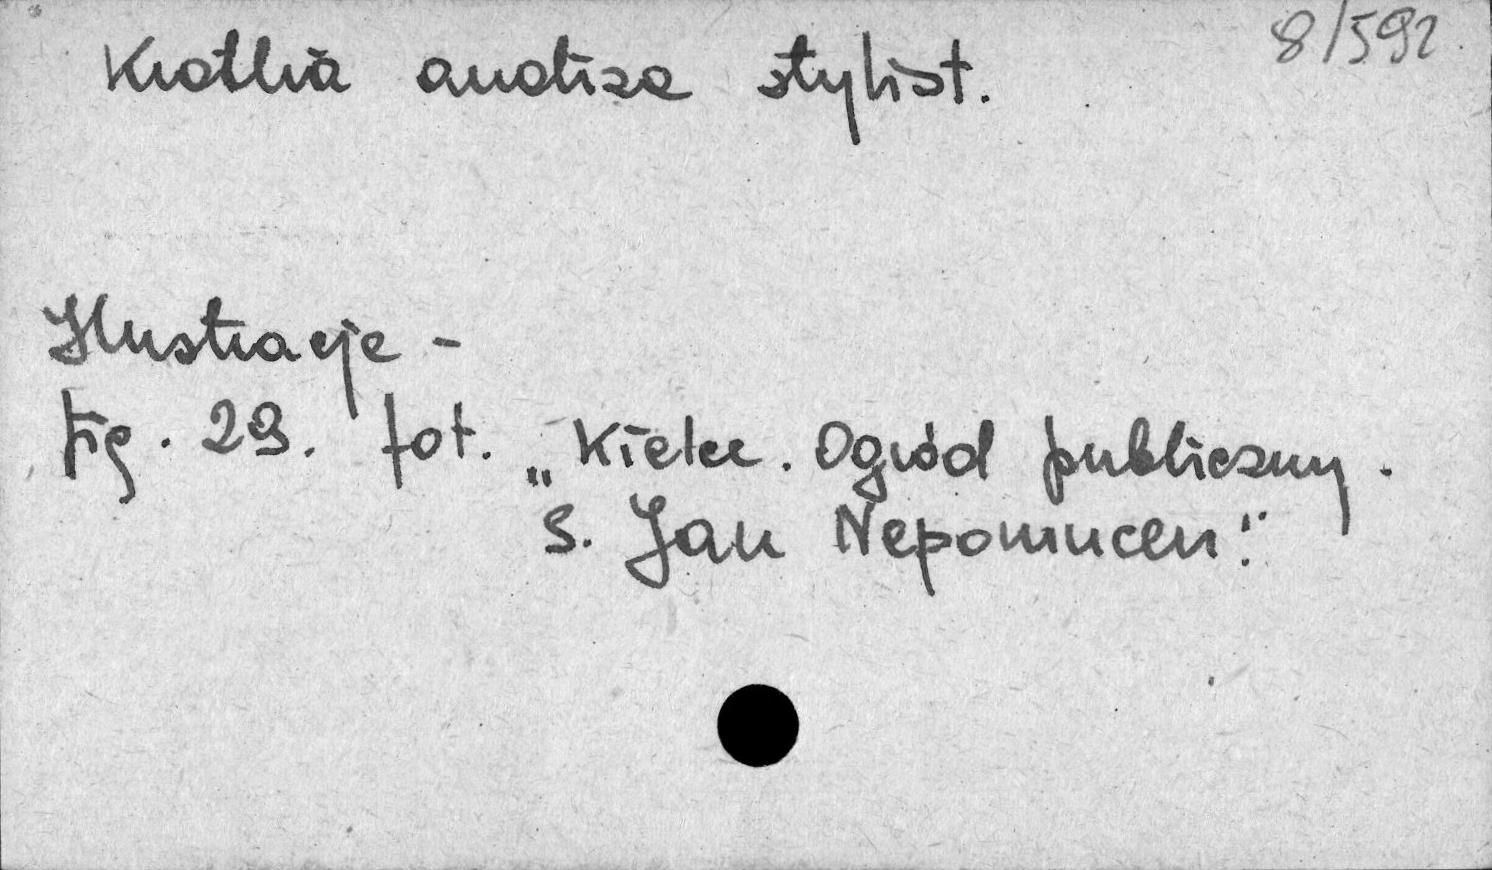 8/592
Krótka analiza stylist.
Ilustracje -
Fig. 29. fot. „Kielce. Ogród publiczny.
S. Jan Nepomucen."